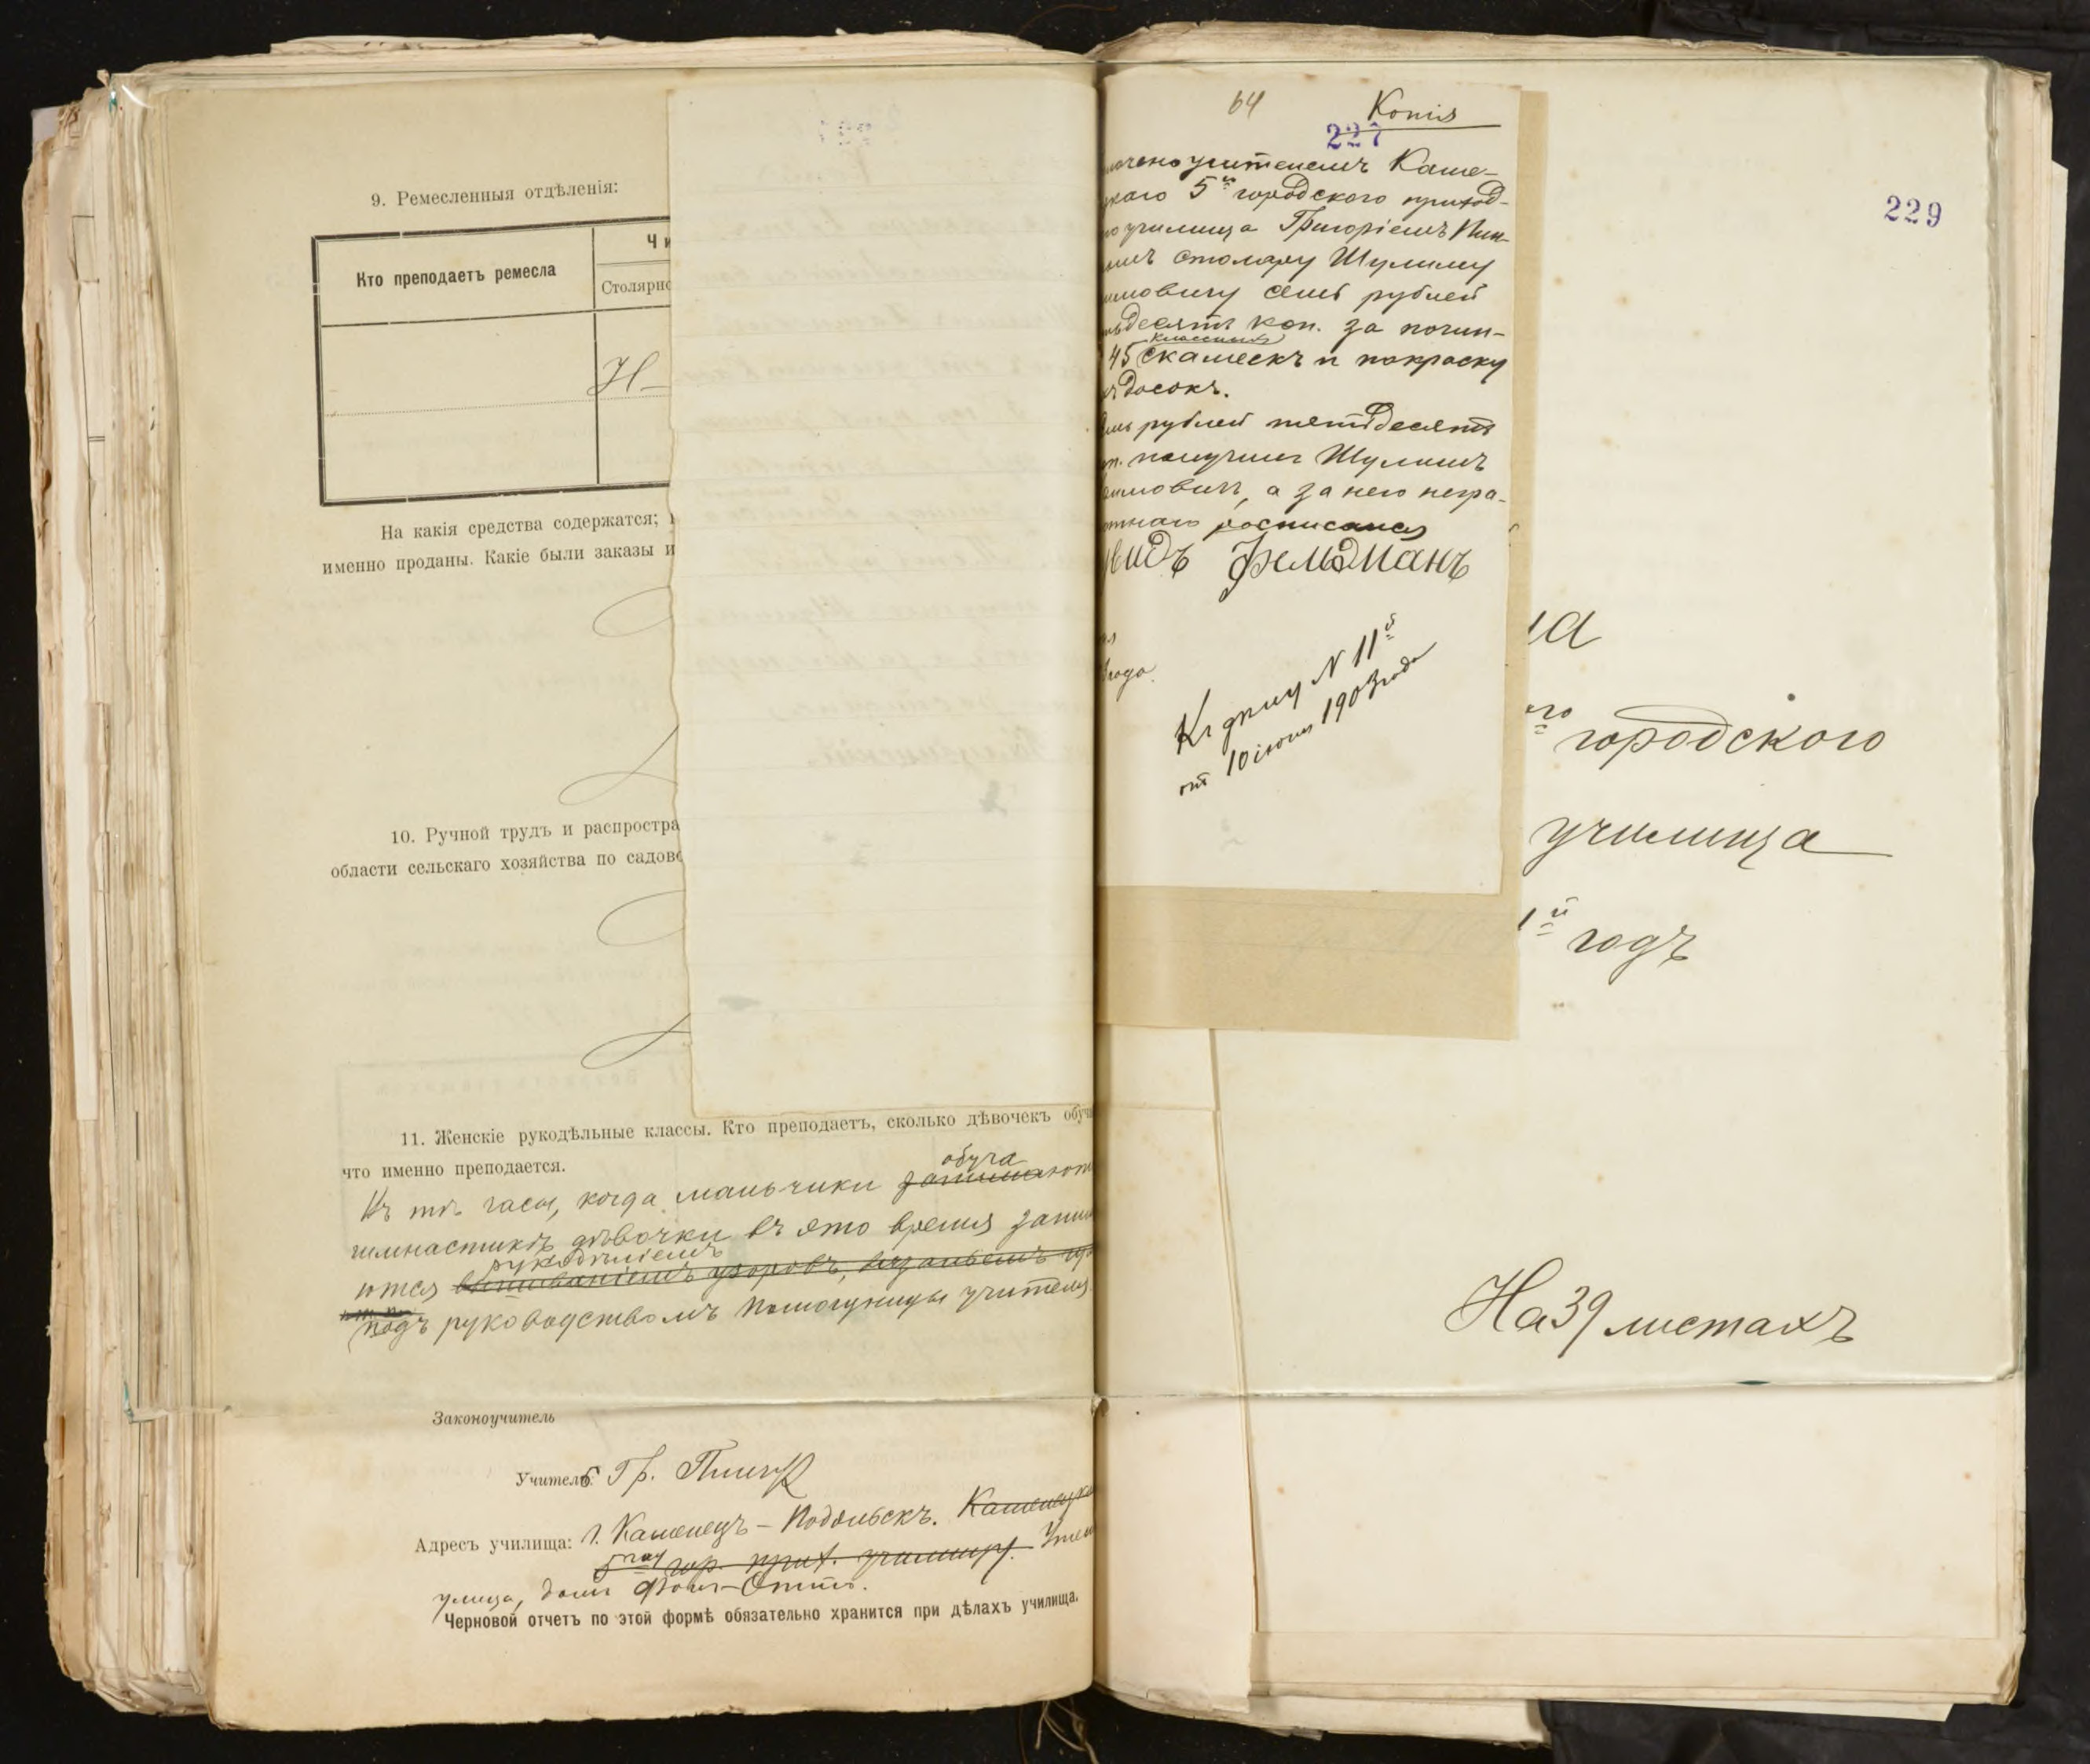 9. Ремесленныя отдѣленія:
Кто преподаетъ ремесла
Ч и
Столярно
Н
На какія средства содержатся;
именно проданы. Какіе были заказы и
10. Ручной трудъ и распростра
области сельскаго хозяйства по садов
11. Женскіе рукодѣльные классы. Кто преподаетъ, сколько дѣвочекъ обуч
что именно преподается.
обуча
Въ тѣ часы, когда мальчики занимают
гимнастикѣ дѣвочки въ это время заним
рукодѣліемъ
ются вышиваніемъ узоровъ, вязаньемъ
подъ руководствомъ помощницы учителя.
Законоучитель
Учитель: Гр.
Адресъ училища: г. Каменецъ-Подольскъ. Каменецко
5му гор. прих. училищу.
улица, домъ Фонъ-Отто.
Черновой отчетъ по этой формѣ обязательно хранится при дѣлахъ училища.
64
Копія
227
лачено учителемъ Каме-
каго 5го городского приход-
го училища Григоріемъ Пин-
омъ столяру Шулиму
имовичу семь рублей
ьдесятъ коп. за почин-
классныхъ
45 скамеекъ и покраску
ъ досокъ.
емь рублей пятьдесятъ
п. получилъ Шулимъ
имовичъ, а за него негра-
отнаго росписался
видъ Фельдманъ
года.
Къ дѣлу N 11б
отъ 10 іюня 1903 года
229
на
го городского
училища
1й годъ
На 39 листахъ